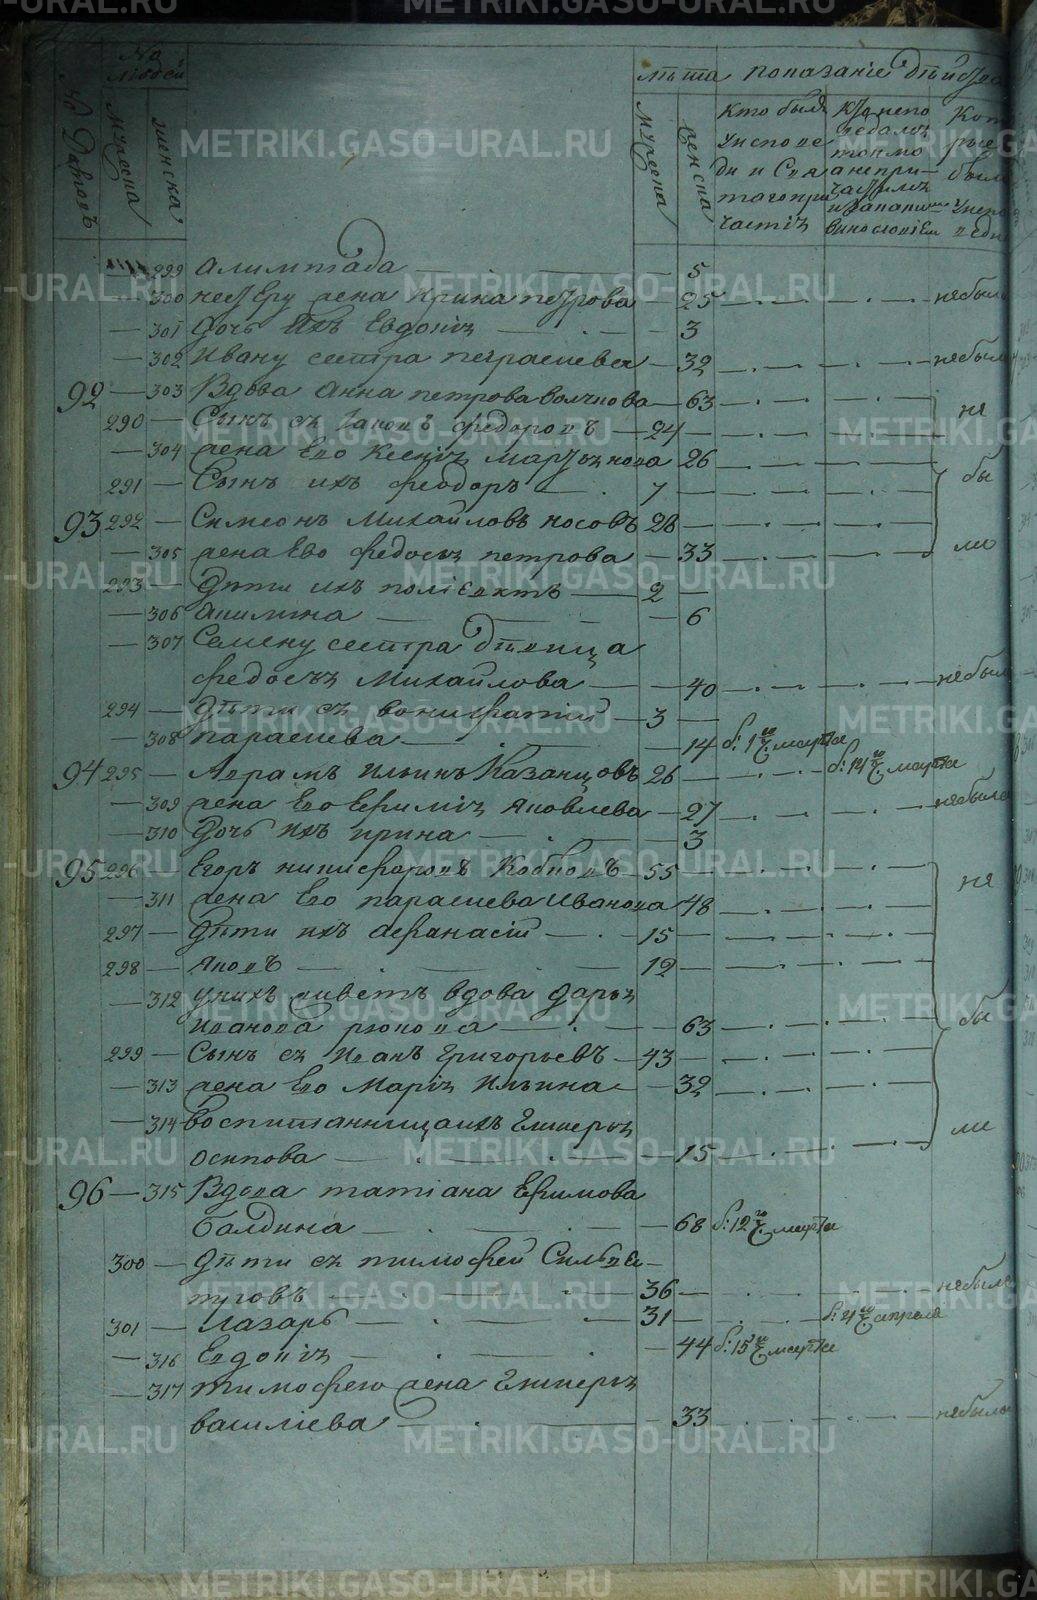 METRIKI.GASO-URAL.RU
№ людей
№ Дворовъ
мужеска
женска
лѣта показаніе дѣйства
мужеска
женска
кто былъ у исповеди и Святаго причастія
299 Олимпіада — 5
300 нестеру жена Ирина петрова — 25 небыла
301 дочь ихъ Евдокія — 3
302 Ивану сестра параскева — 32 небыла
92 — 303 Вдова Анна петрова волчкова — 63 не
290 — Сынъ ея Іаковъ федоровъ — 24
304 жена Его Ксенія мартынова 26
291 — Сынъ ихъ феодоръ — 7 бы
93 292 — Симеонъ Михайловъ носовъ 28
305 жена Его федосья петрова — 33 ли
293 — дѣти ихъ поліевктъ — 2
306 Акилина — 6
307 Семену сестра дѣвица
федосья Михайлова — 40 небыла
294 — дѣти ея вонифатій — 3
308 параскева — 14 б: 1го марта
94 295 — Аврамъ Ильинъ Казанцовъ 26 б: 14го марта
309 жена Его Ефимія Яковлева — 27 небыла
310 дочь ихъ ирина — 3
95 296 — Егоръ никифоровъ Кобновъ — 55 не
311 жена Его параскева Иванова 48
297 — дѣти ихъ Афанасій — 15
298 — Яковъ — 12
312 у нихъ живетъ вдова дарья
Иванова рюкова — 63 бы
299 — Сынъ ея Иванъ Григорьевъ — 43
313 жена Его Марія Ильина — 32
314 воспитанница ихъ Гликерья
осипова — 15 ли
96 — 315 Вдова татіана Ефимова
балдина — 68 б: 12го марта
300 — дѣти ея тимофей Сильве-
тровъ — 36 небылъ
301 — Лазарь — 31 б: 4го апреля
316 Евдокія — 44 б: 15го марта
317 тимофею жена Гликерья
василіева — 33 небыла